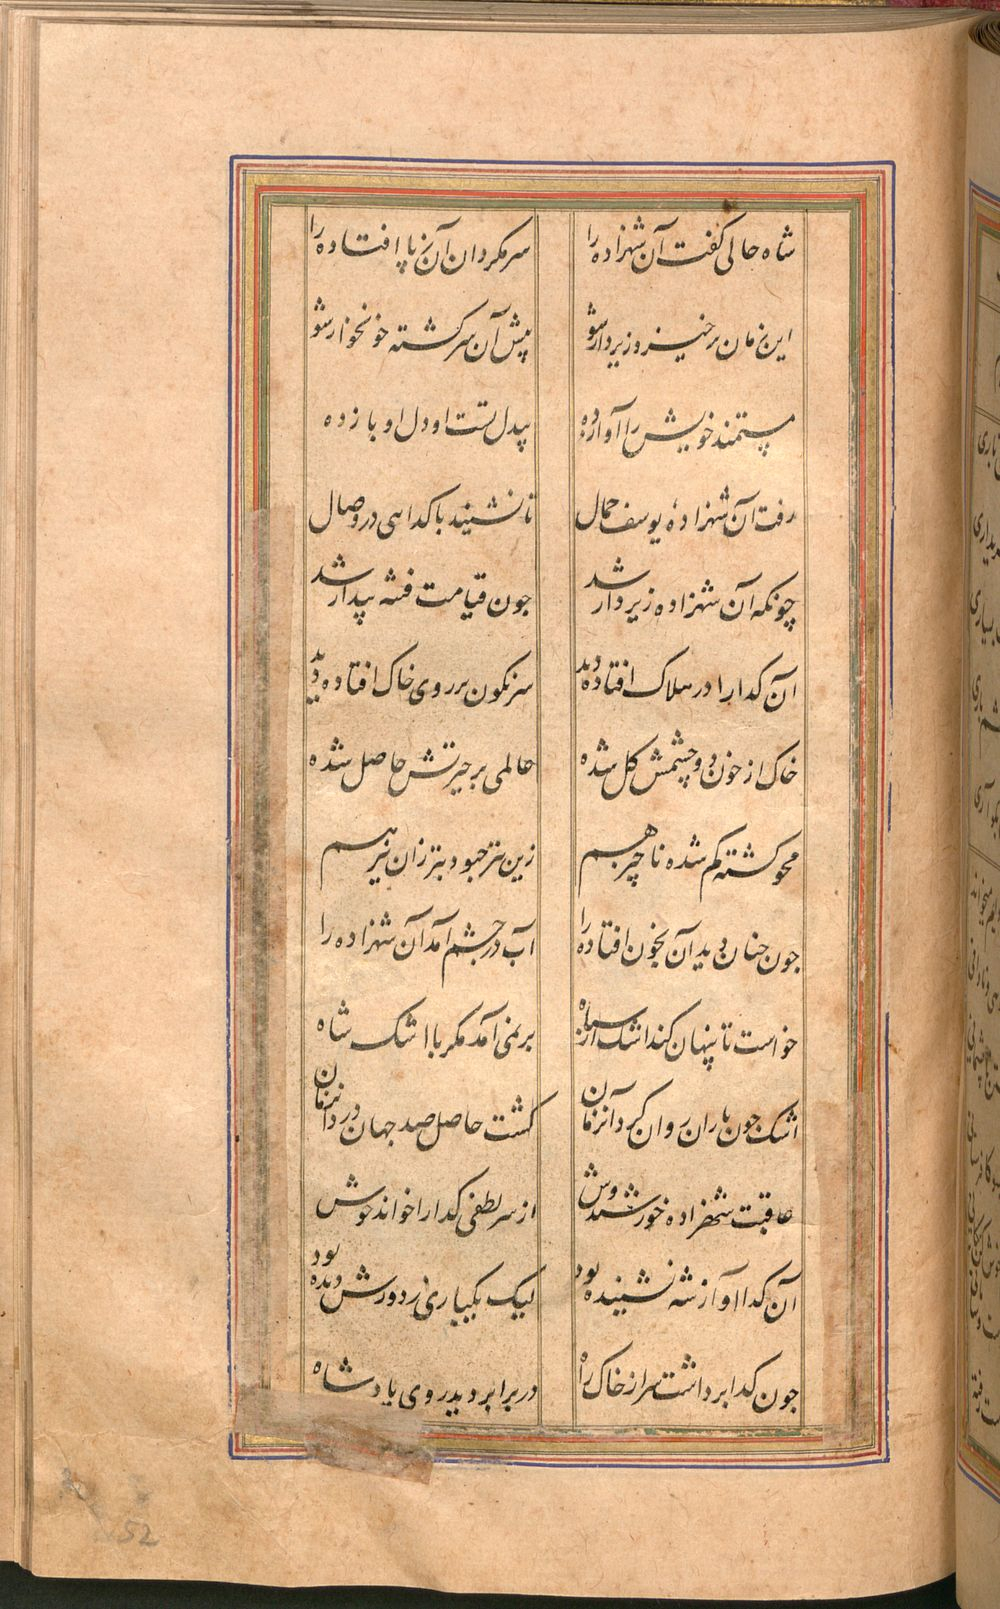 شاه حالی کفت آن شهزاده را سرمکردان آن ز پا افتاده را
این زمان برخیز و زیر دار شو پیش آن سرکشته خونخوار شو
مستمند خویش را آواز ده بیدل تست او دل او باز ده
رفت آن شهزادهٔ یوسف جمال تا نشیند با کدایی در وصال
چونکه آن شهزاده زیر دار شد جون قیامت فتنه بیدار شد
آن کدا را در هلاک افتاده دید سرنکون بر روی خاک افتاده دید
خاک از خون دو چشمش کل شده عالمی بر حیرتش حاصل شده
محو کشته کم شده ناچیز هم زین بتر جبود بتر زان نیز هم
جون جنان دید آن بخون افتاده را آب در جشم آمد آن شهزاده را
خواست تا پنهان کند اشک از سپاه بر نمی آمد مکر با اشک شاه
اشک جون باران روان کرد آنزمان کشت حاصل صد جهان درد آنزمان
عاقبت شهزاده خورشیدوش از سر لطفی کدا را خواند خوش
آن کدا آواز شه نشنیده بود لیک بکباری ز دورش دیده بود
جون کدا برداشت سر از خاک راه در برابر دید روی پادشاه
52